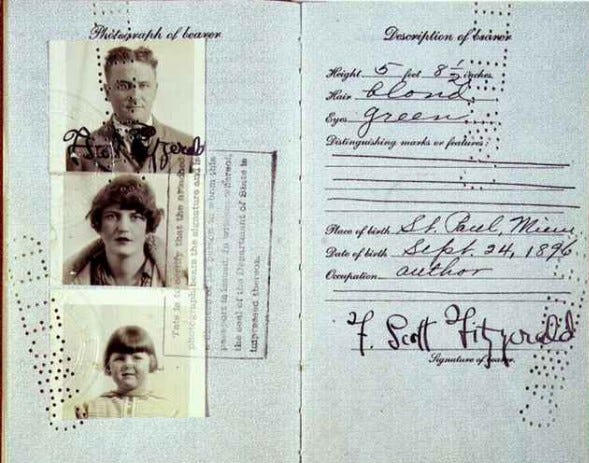 Photograph of bearer
F. Scott Fitzgerald
This is to certify that the attached
photograph bears the signature and is
of the person to whom this
passport is issued, in witness whereof,
the seal of the Department of State is
impressed thereon.
Description of bearer
Height 5 feet 8 1/2 inches.
Hair blond
Eyes green
Distinguishing marks or features:
Place of birth St. Paul, Minn
Date of birth Sept. 24, 1896
Occupation author
F. Scott Fitzgerald
Signature of bearer.